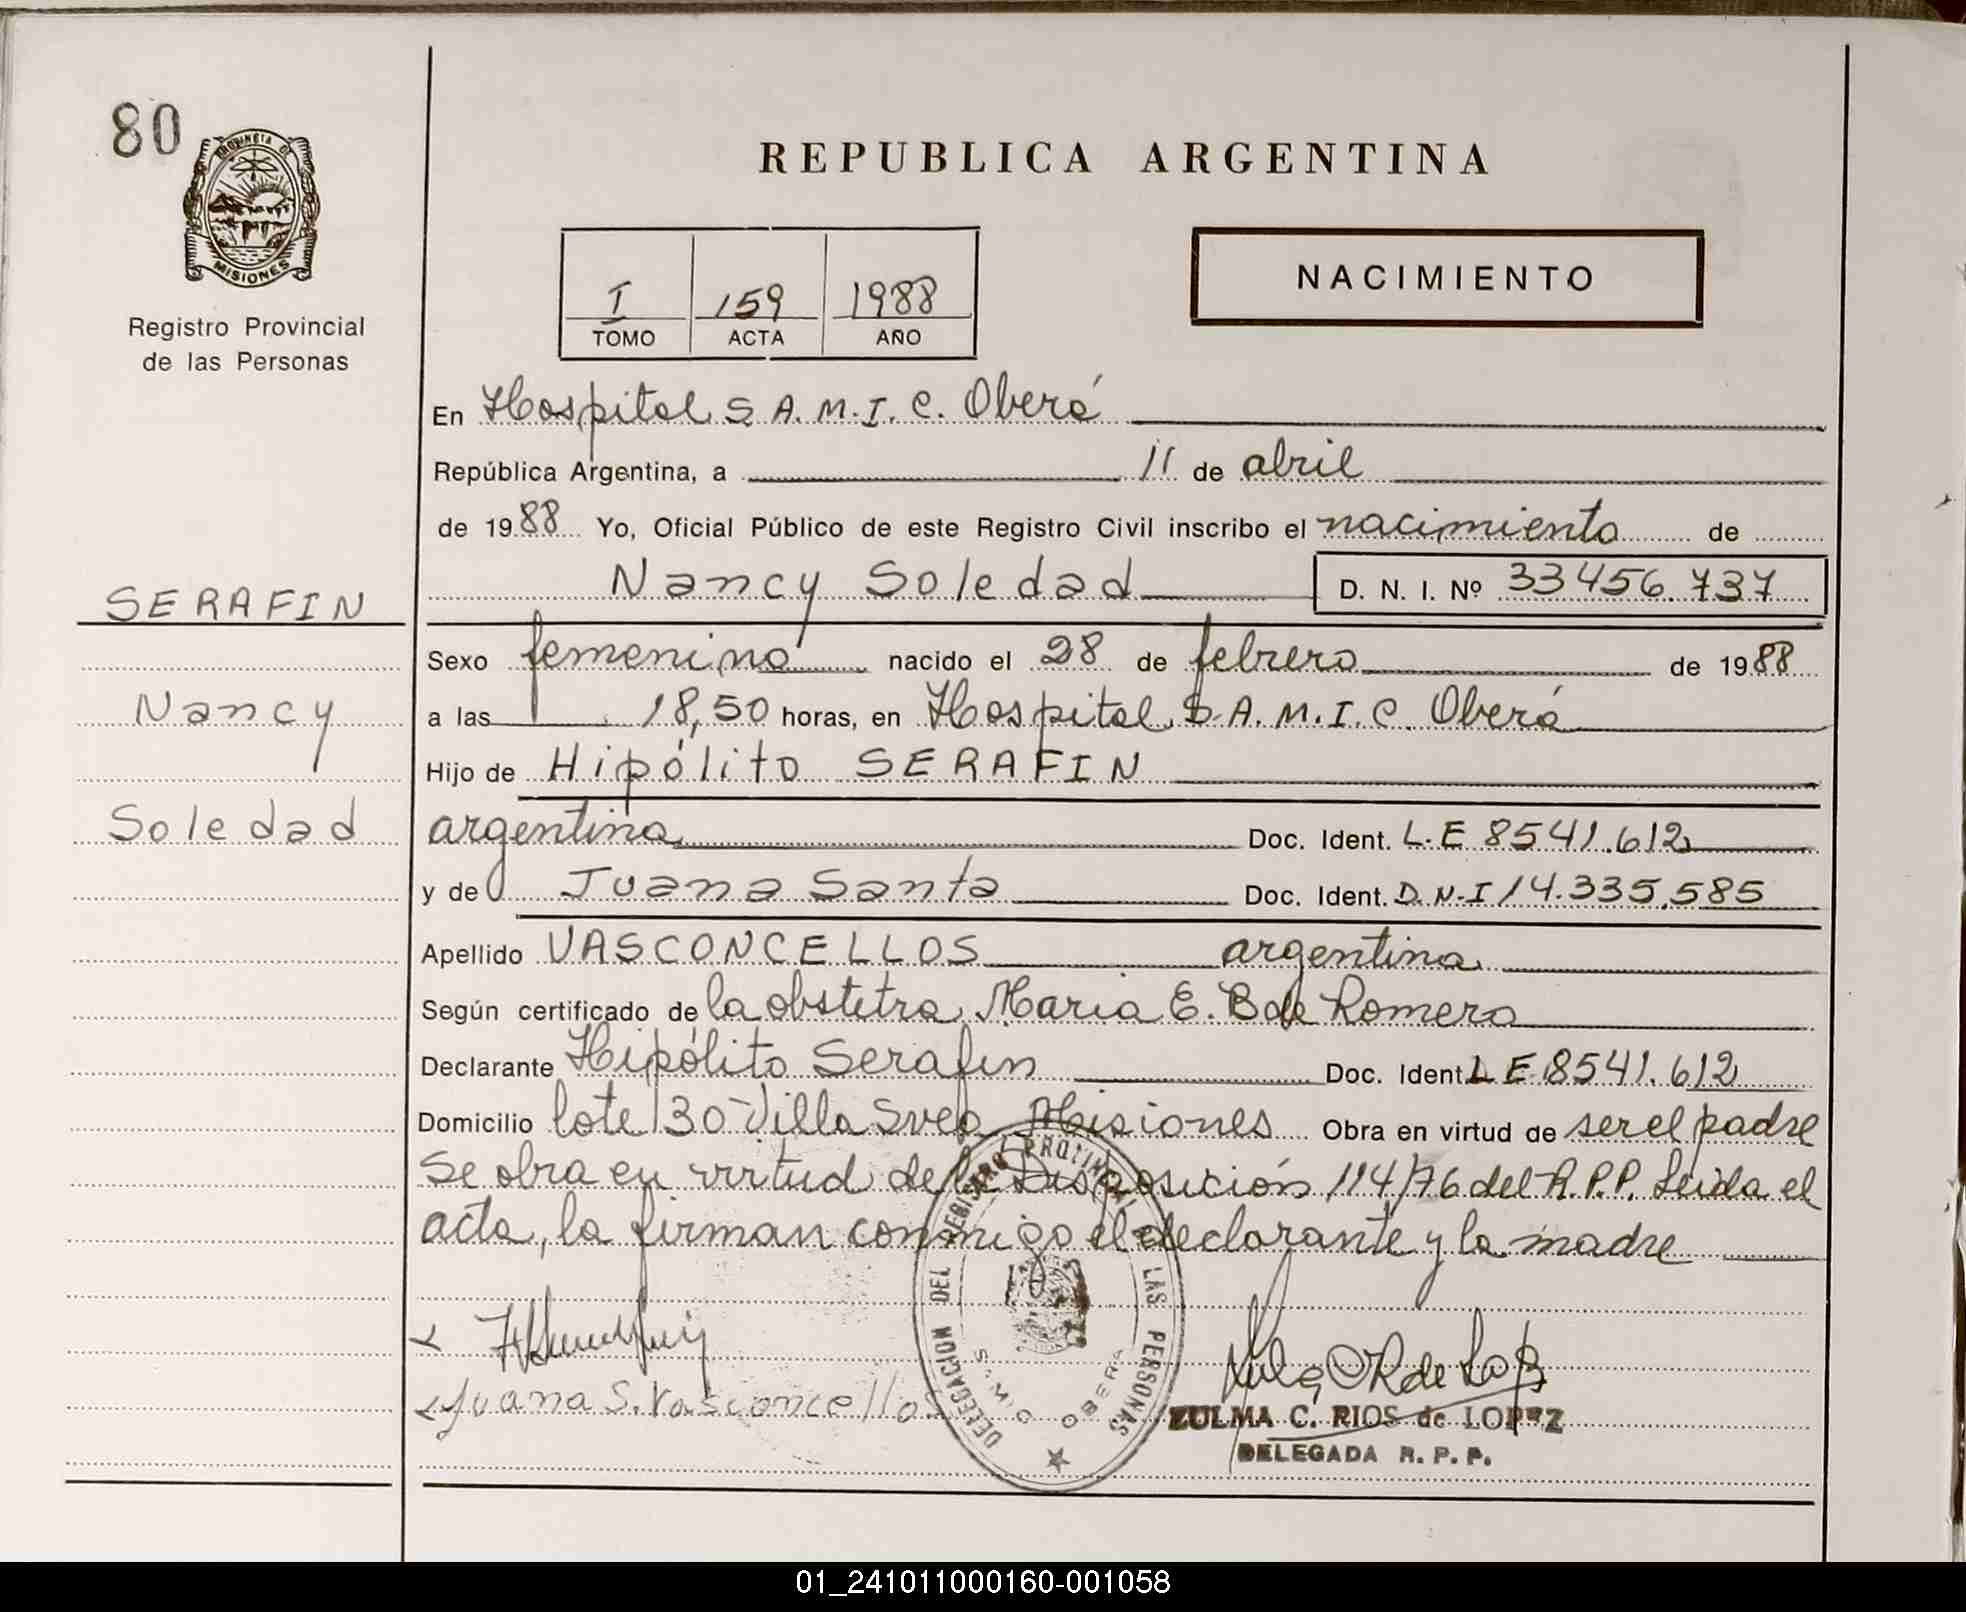 80
PROVINCIA DE
MISIONES
Registro Provincial
de las Personas
REPUBLICA ARGENTINA
I 159 1988
TOMO ACTA AÑO
NACIMIENTO
En Hospital S.A.M.I.C. Oberá
República Argentina, a 11 de abril
de 1988 Yo, Oficial Público de este Registro Civil inscribo el nacimiento de
Nancy Soledad D. N. I. Nº 33456.737
SERAFIN
Sexo femenino nacido el 28 de febrero de 1988
Nancy
a las 18,50 horas, en Hospital S.A.M.I.C. Oberá
Hijo de Hipólito SERAFIN
Soledad
argentina Doc. Ident. L.E 8541.612
y de Juana Santa Doc. Ident. D.N.I 14.335.585
Apellido VASCONCELLOS argentina
Según certificado de la obstetra Maria E. B de Romero
Declarante Hipólito Serafin Doc. Ident. L E 8541.612
Domicilio lote 130 Villa Svea Misiones Obra en virtud de ser el padre
Se obra en virtud de la Disposición 114/76 del R.P.P. Leida el
acta, la firman conmigo el declarante y la madre
Juana S. Vasconcellos
DELEGACION DEL REGISTRO PROVINCIAL DE LAS PERSONAS
SAMIC OBERA
ZULMA C. RIOS de LOPEZ
DELEGADA R. P. P.
01_241011000160-001058